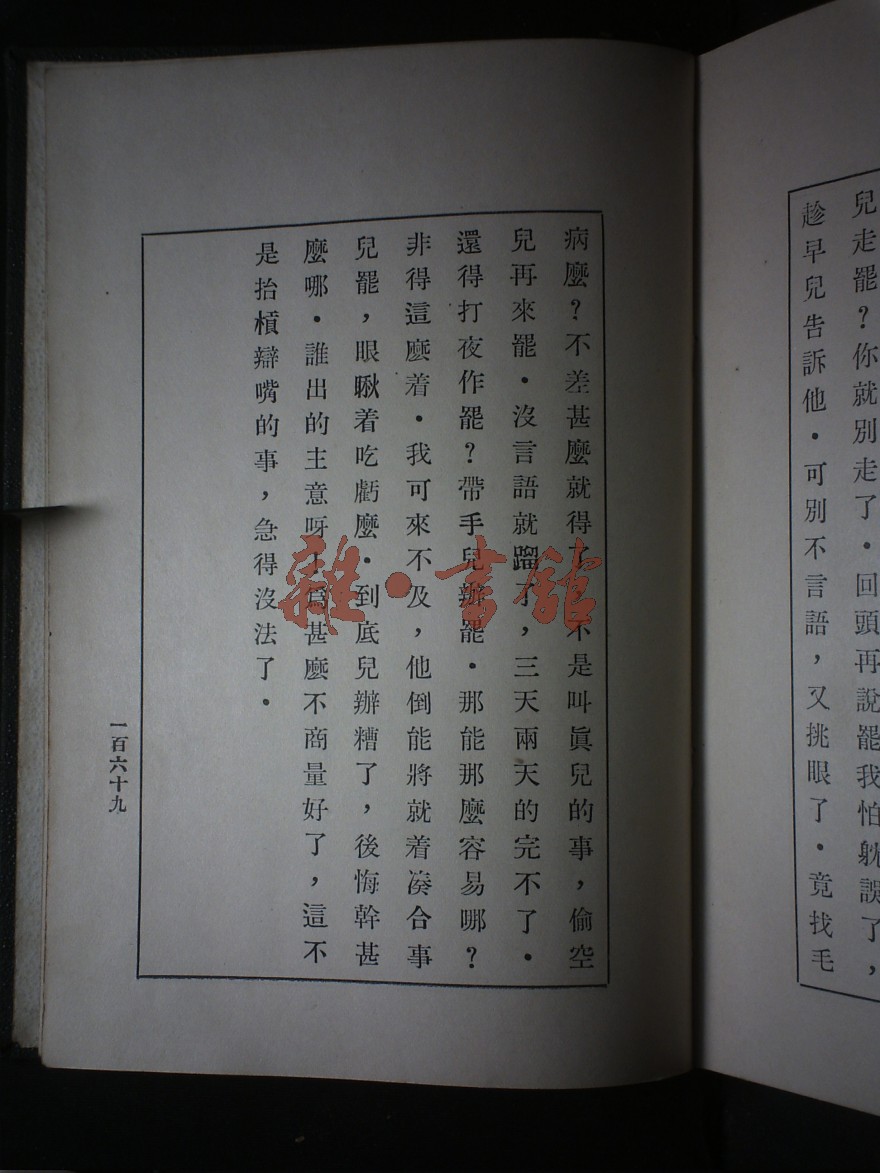 兒走罷？你就別走了．回頭再說罷我怕躭誤了，
趁早兒告訴他．可別不言語，又挑眼了．竟找毛
病麼？不差甚麼就得了 不是叫眞兒的事，偷空
兒再來罷．沒言語就蹓了，三天兩天的完不了．
還得打夜作罷？帶手兒辦罷．那能那麼容易哪？
非得這麼着．我可來不及，他倒能將就着湊合事
兒罷，眼瞅着吃虧麼．到底兒辦糟了，後悔幹甚
麼哪．誰出的主意呀！爲甚麼不商量好了，這不
是抬槓辯嘴的事，急得沒法了．
一百六十九
雜·書館